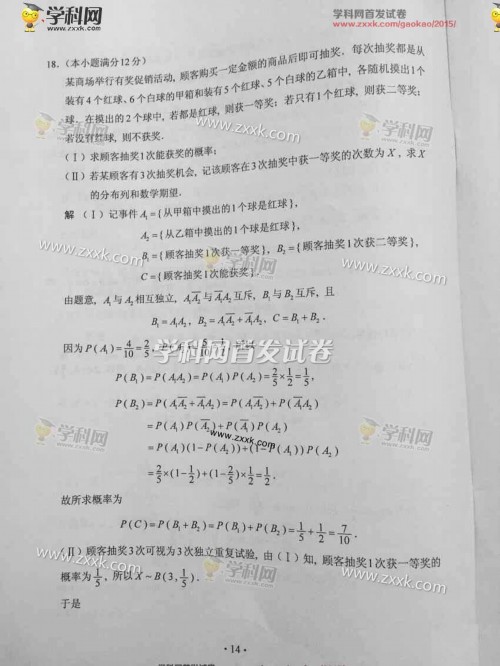 学科网 zxxk.com
学科网首发试卷
www.zxxk.com/gaokao/2015/
18.（本小题满分12分）
某商场举行有奖促销活动，顾客购买一定金额的商品后即可抽奖．每次抽奖都是从
装有4个红球、6个白球的甲箱和装有5个红球、5个白球的乙箱中，各随机摸出1个
球．在摸出的2个球中，若都是红球，则获一等奖；若只有1个红球，则获二等奖；
若没有红球，则不获奖．
（Ⅰ）求顾客抽奖1次能获奖的概率；
（Ⅱ）若某顾客有3次抽奖机会，记该顾客在3次抽奖中获一等奖的次数为X，求X
的分布列和数学期望．
解 （Ⅰ）记事件A₁={从甲箱中摸出的1个球是红球}，
A₂={从乙箱中摸出的1个球是红球}，
B₁={顾客抽奖1次获一等奖}，B₂={顾客抽奖1次获二等奖}，
C={顾客抽奖1次能获奖}．
由题意，A₁与A₂相互独立，A₁A̅₂与A̅₁A₂互斥，B₁与B₂互斥，且
B₁=A₁A₂，B₂=A₁A̅₂+A̅₁A₂，C=B₁+B₂．
因为P(A₁)=4/10=2/5，
P(B₁)=P(A₁A₂)=P(A₁)P(A₂)=2/5×1/2=1/5，
P(B₂)=P(A₁A̅₂+A̅₁A₂)=P(A₁A̅₂)+P(A̅₁A₂)
=P(A₁)P(A̅₂)+P(A̅₁)P(A₂)
=P(A₁)(1-P(A₂))+(1-P(A₁))P(A₂)
=2/5×(1-1/2)+(1-2/5)×1/2=1/2．
故所求概率为
P(C)=P(B₁+B₂)=P(B₁)+P(B₂)=1/5+1/2=7/10．
（Ⅱ）顾客抽奖3次可视为3次独立重复试验，由（Ⅰ）知，顾客抽奖1次获一等奖的
概率为1/5，所以X~B(3,1/5)．
于是
·14·
学科网首发试卷
www.zxxk.com